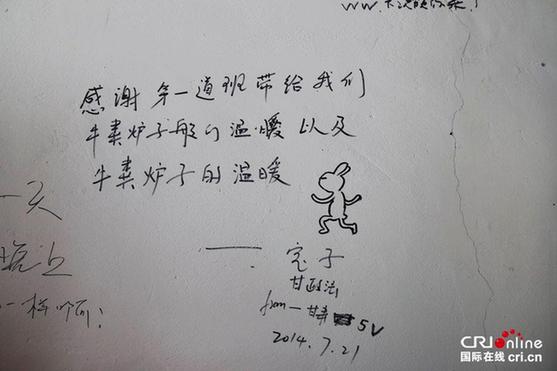 感谢第一道班带给我们
牛粪炉子般的温暖以及
牛粪炉子的温暖
一天
一样啊
—— 定子
甘政法
from 一甘肃 5V
2014.7.21
CRI online
国际在线 cri.cn